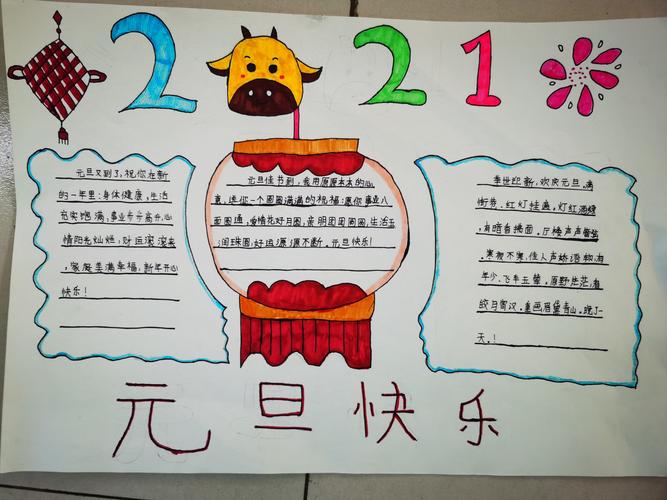 2 21
元旦又到了,祝你在新
的一年里:身体健康,生活
充实饱满,事业步步高升,心
情阳光灿烂,财运滚滚来
,家庭美满幸福,新年开心
快乐!
元旦佳节到,我用原原本本的心
意,送你一个圆圆满满的祝福:愿你事业八
面圆通,爱情花好月圆,亲朋团团圆圆,生活玉
润珠圆,好运源源不断。元旦快乐!
辞世迎新,欢庆元旦.满
街芬,红灯挂盏,灯红酒绿
,有暗香拂面.
.寒视不奥,佳人声娇语物,有
年少.飞车玉辇,原野茫茫,有
皎月霄汉.重画眉黛青山.晚了一
天.!
元旦快乐